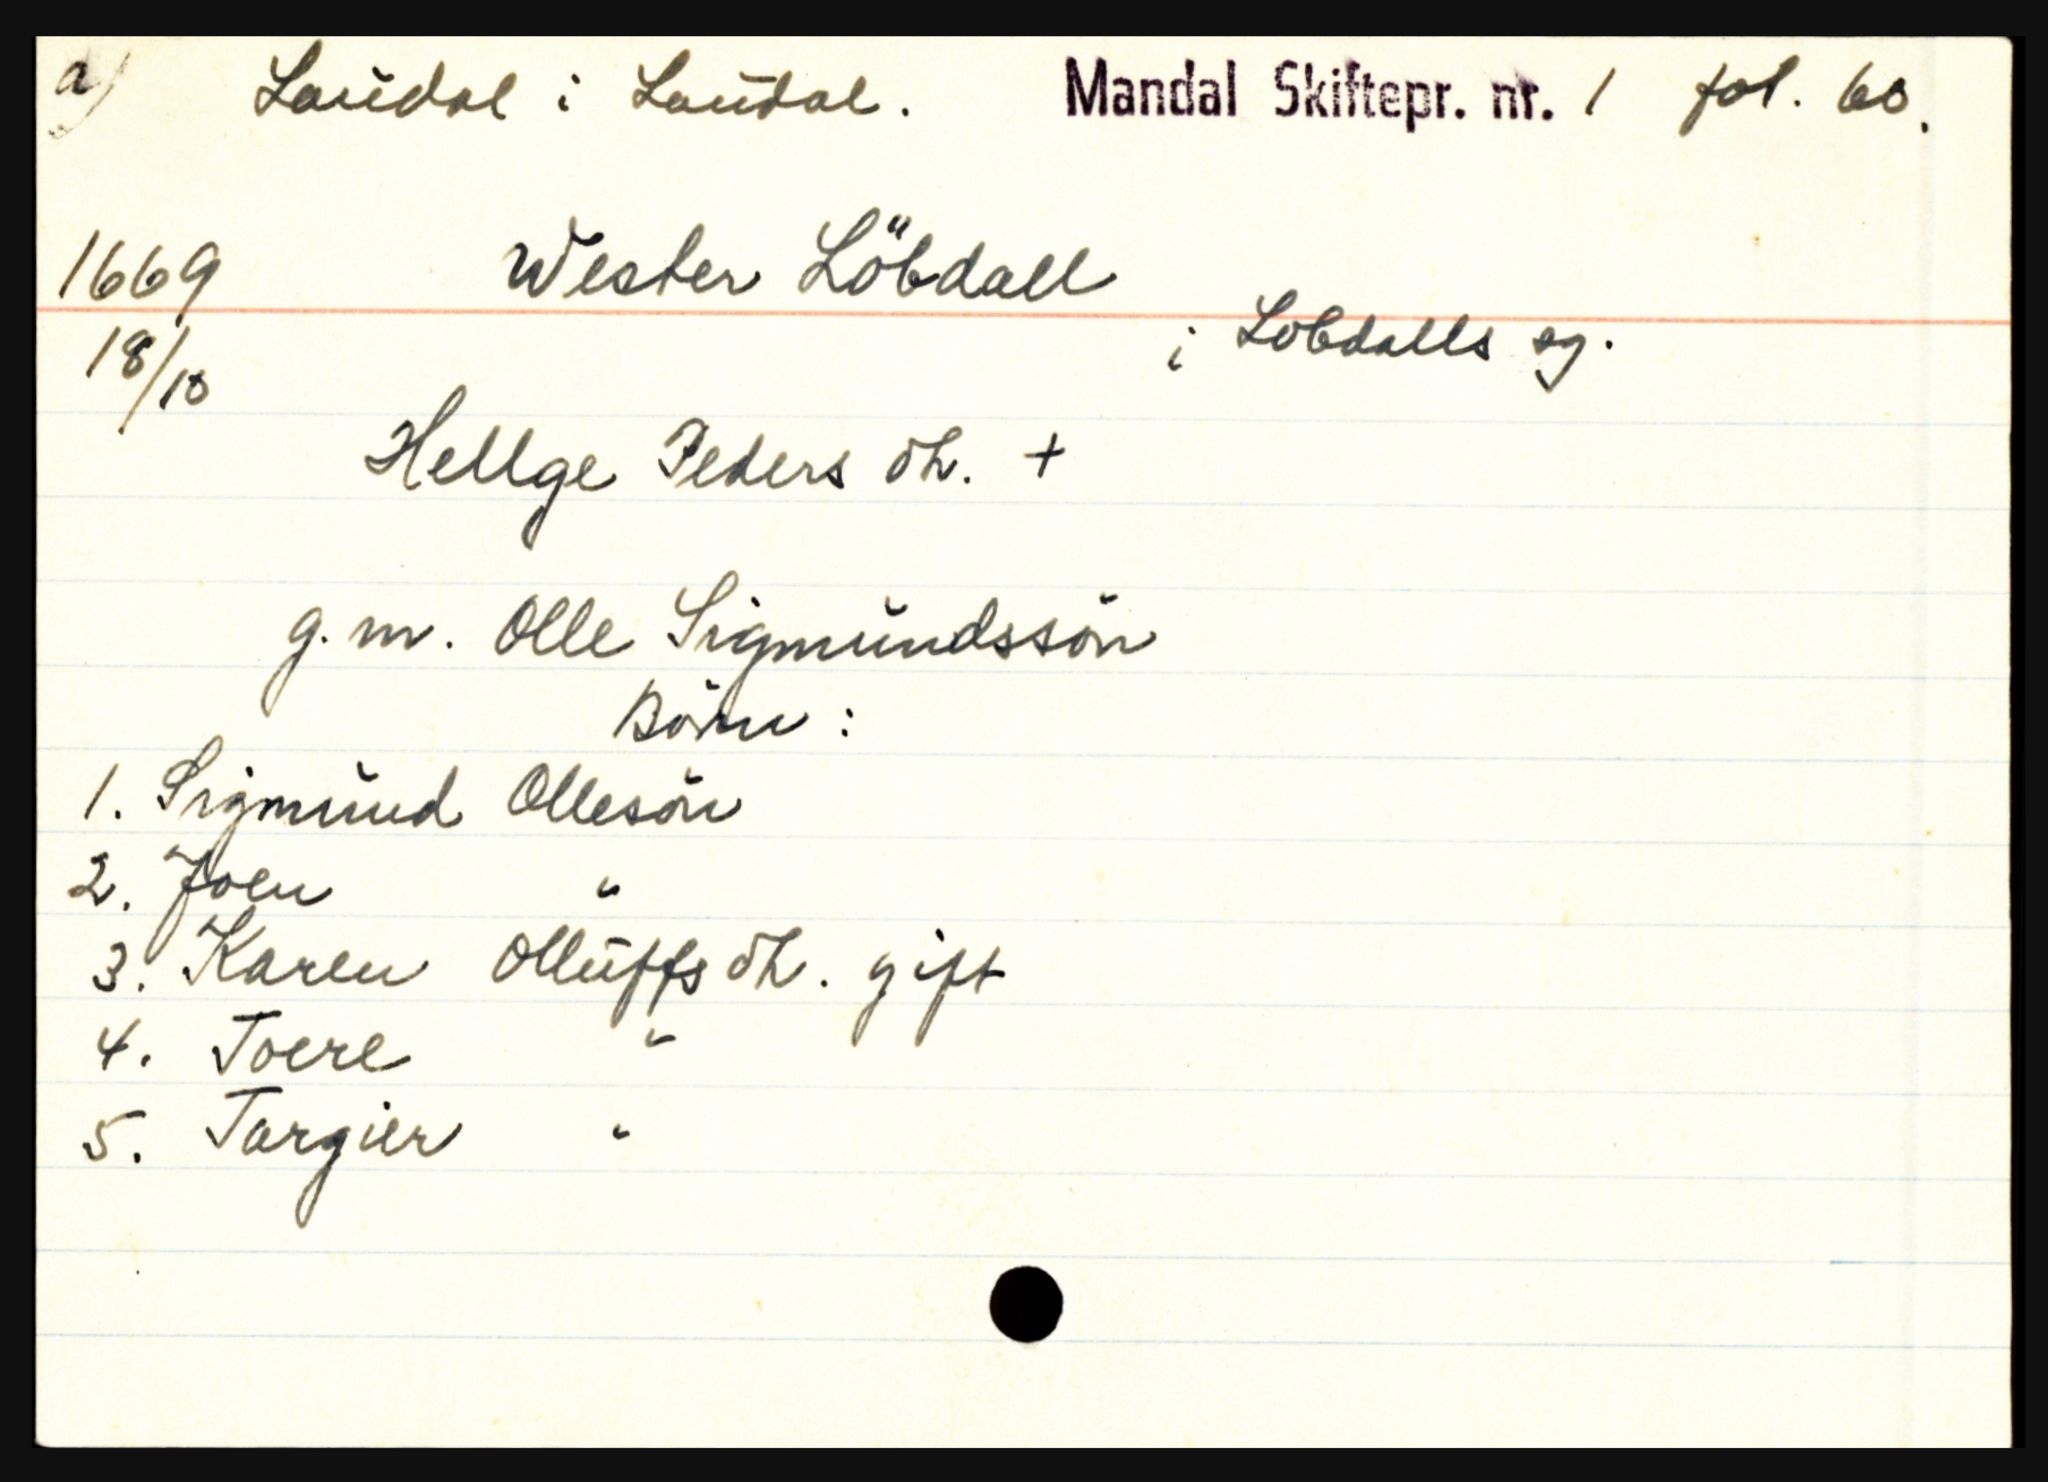 a) Laudal i Laudal. Mandal Skiftepr. nr. 1 fol. 60.
1669 Wester Löbdall
18/10 i Löbdalls sg.
Hellge Peders dh. +
g. m. Olle Sigmundssön
Börn :
1. Sigmund Ollesön
2. Joen "
3. Karen Olluffs dh. gift
4. Toere "
5. Targier "